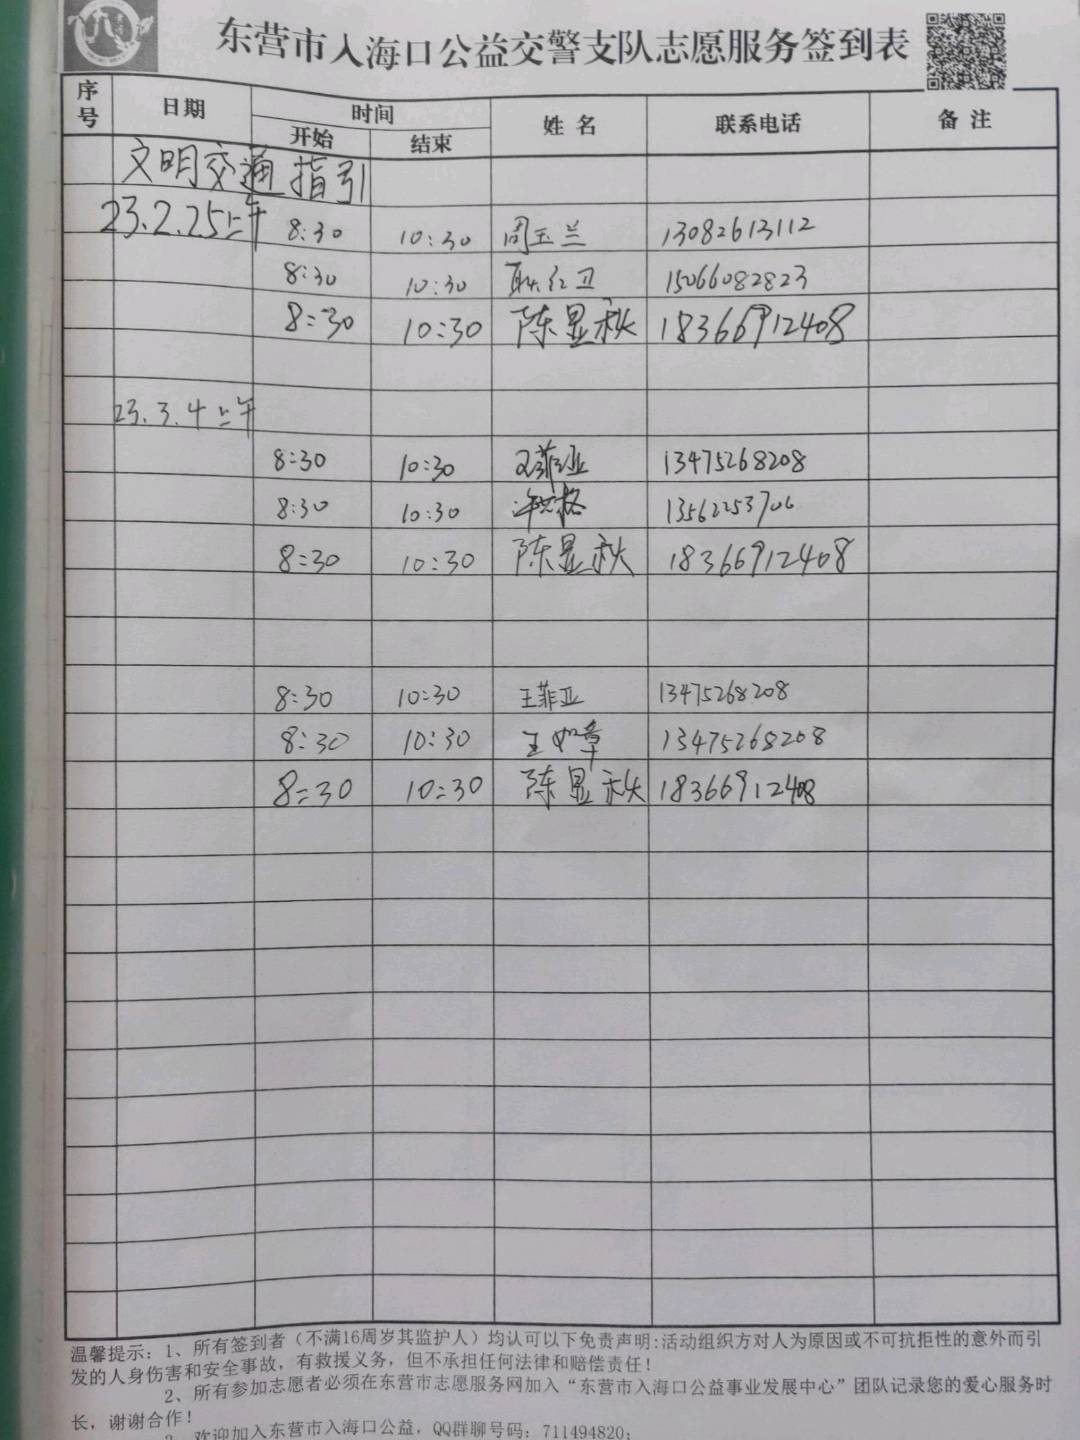 东营市入海口公益交警支队志愿服务签到表
序号 日期 时间 姓名 联系电话 备注
开始 结束
文明交通指引
23.2.25上午 8:30 10:30 周玉兰 13082613112
8:30 10:30 耿红卫 15066082823
8:30 10:30 陈显秋 18366912408
23.3.4上午
8:30 10:30 王菲亚 13475268208
8:30 10:30 13562253706
8:30 10:30 陈显秋 18366912408
8:30 10:30 王菲亚 13475268208
8:30 10:30 王如章 13475268208
8:30 10:30 陈显秋 18366912408
温馨提示:1、所有签到者(不满16周岁其监护人)均认可以下免责声明:活动组织方对人为原因或不可抗拒性的意外而引
发的人身伤害和安全事故,有救援义务,但不承担任何法律和赔偿责任!
2、所有参加志愿者必须在东营市志愿服务网加入“东营市入海口公益事业发展中心”团队记录您的爱心服务时
长,谢谢合作!
3、欢迎加入东营市入海口公益,QQ群聊号码:711494820;